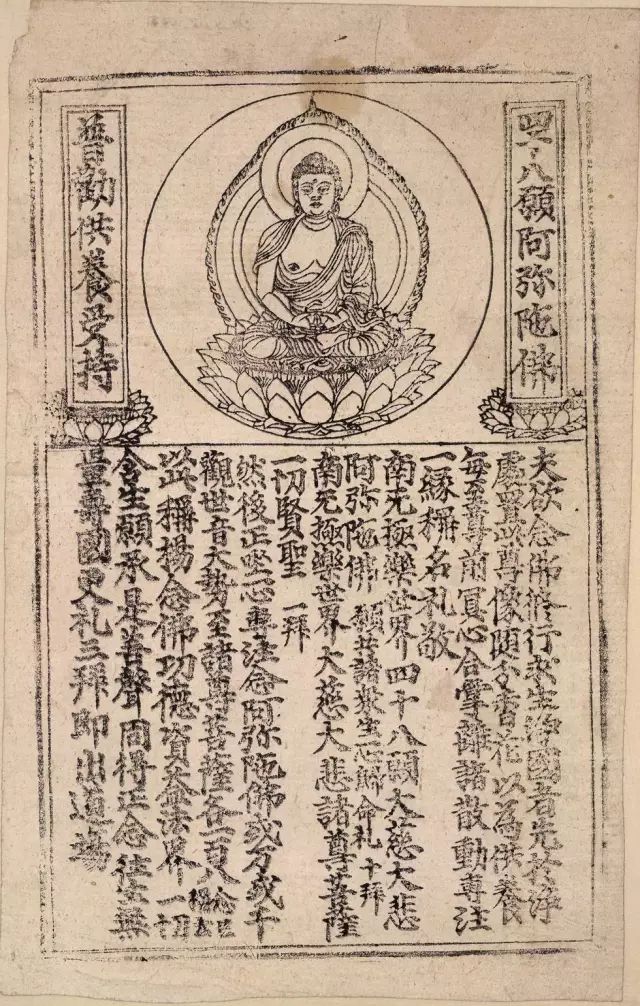 四十八願阿弥陁佛
普勸供養受持
夫欲念佛修行求生淨國者先於淨
處置此尊像随分香花以為供養
每至尊前冥心合掌離諸散動專注
一緣稱名礼敬
南无極樂世界四十八願大慈大悲
阿弥陁佛 願共諸衆生一心歸命礼十拜
南无極樂世界大慈大悲諸尊菩薩
一切賢聖 一拜
然後正坐一心專注念阿弥陁佛或万或千
觀世音大勢至諸尊菩薩各一百八
以此稱揚念佛功德資益法界一切
含生願承是善聲同得正念往生無
量尊國更礼三拜即出道場